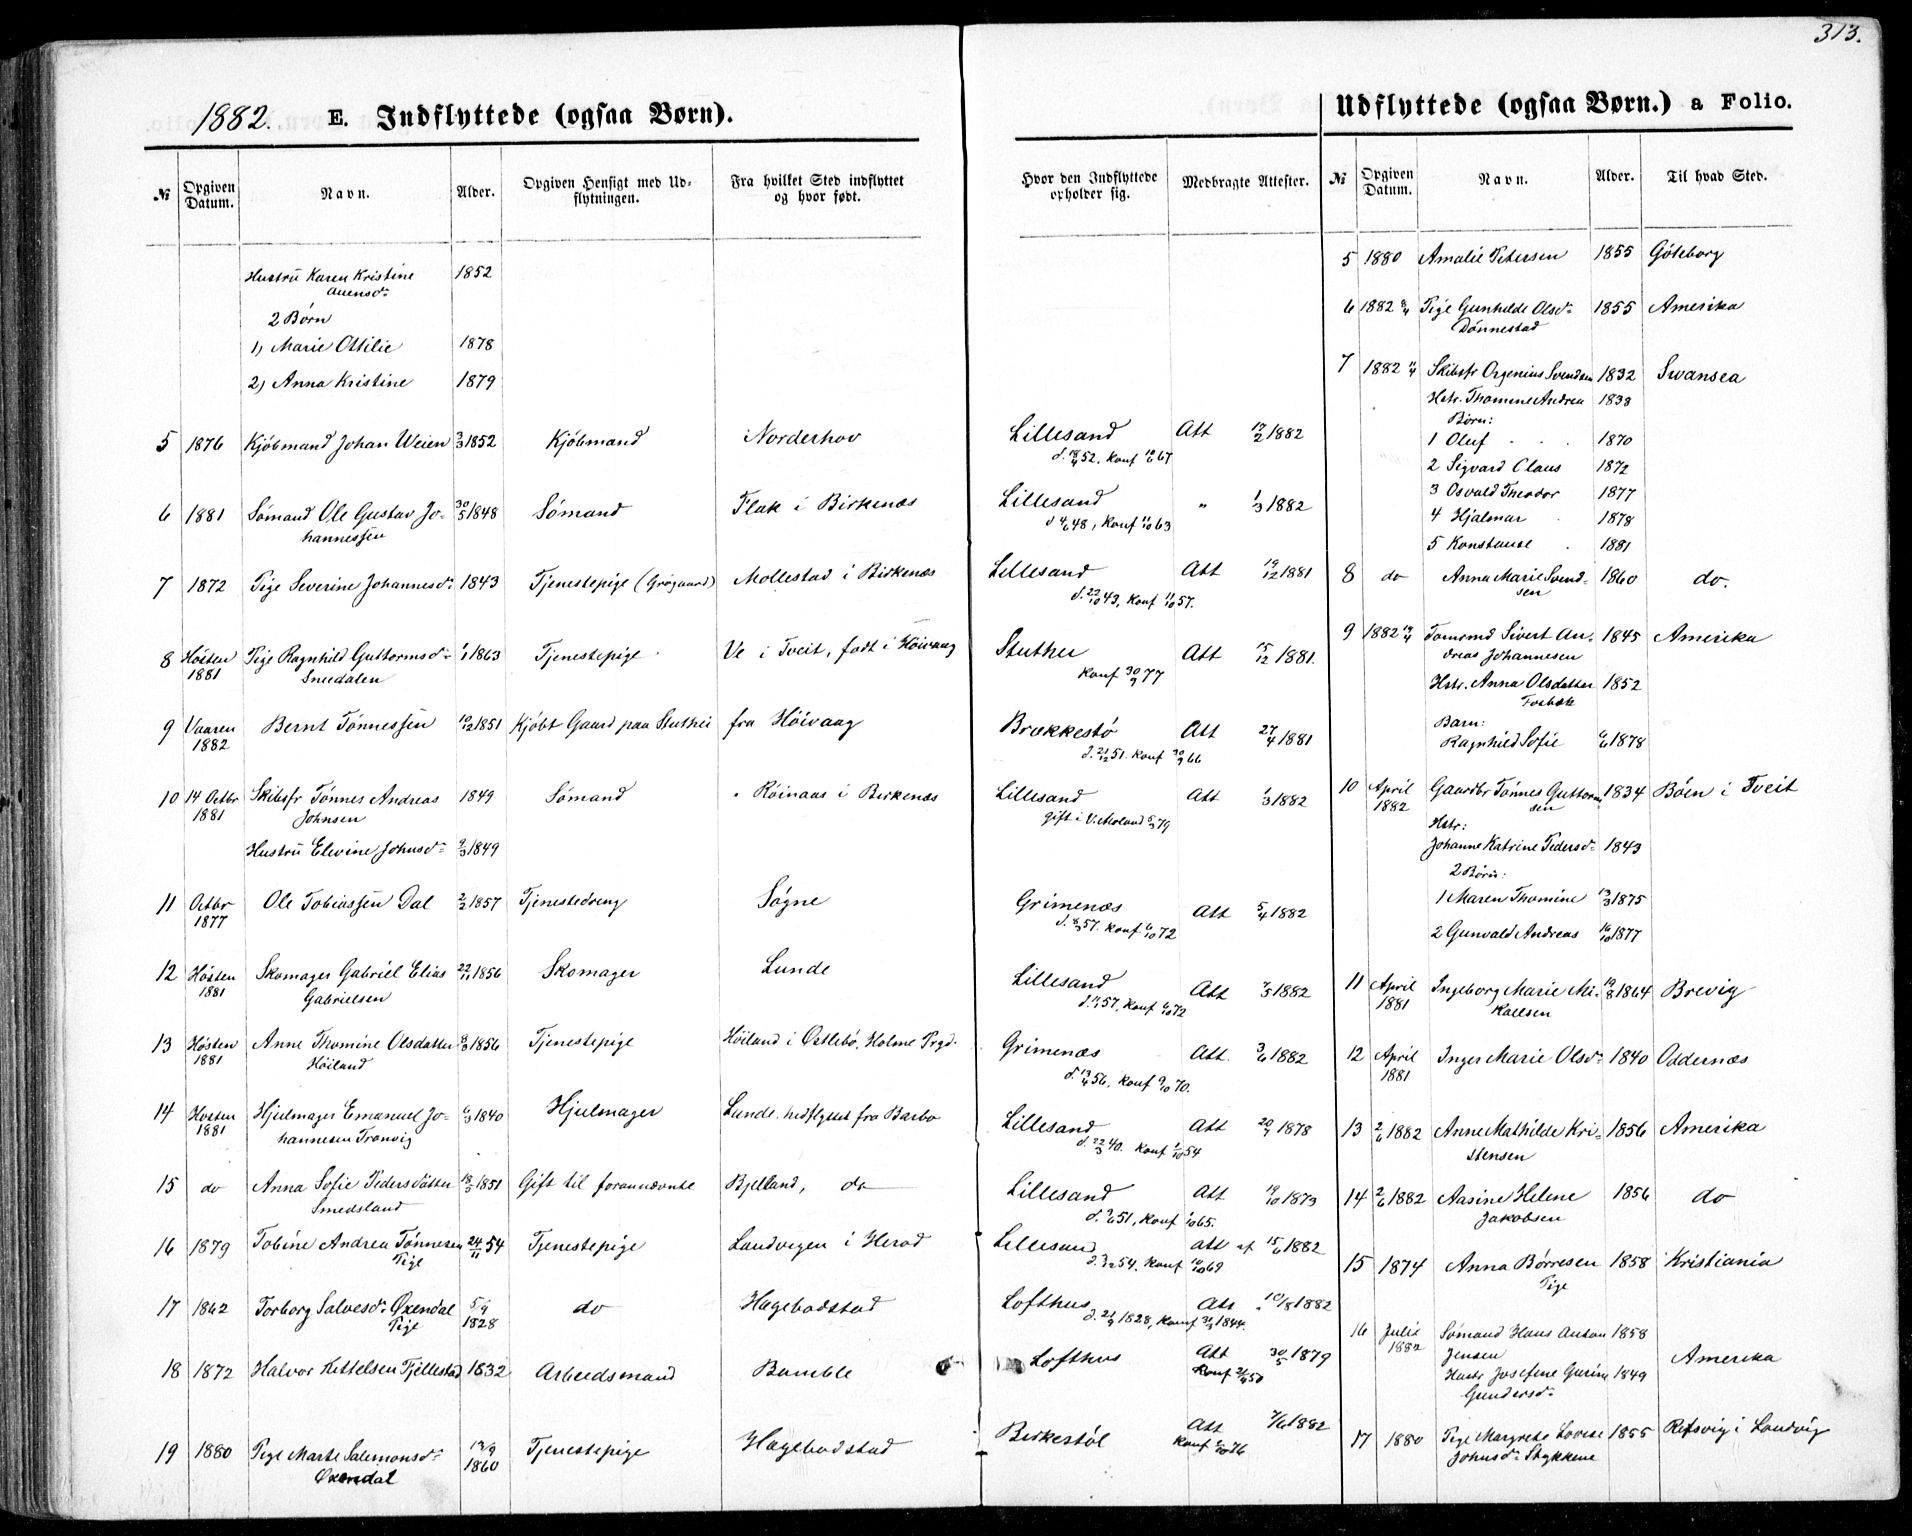 313.
1882. E. Indflyttede (ogsaa Børn).
№ Opgiven Datum. Navn. Alder. Opgiven Hensigt med Udflytningen. Fra hvilket Sted indflyttet og hvor født. Hvor den Indflyttede opholder sig. Medbragte Attester.
Hustru Karen Kristine 1852
2 Børn
1) Marie Ottilie 1878
2) Anna Kristine 1879
5 1876 Kjøbmand Johan Weien 2/3 1852 Kjøbmand Norderhov Lillesand Att 17/2 1882
d. 18/4 52. Konf 67
6 1881 Sømand Ole Gustav Jo- 30/5 1848 Sømand Flak i Birkenæs Lillesand " 1/3 1882
hannessen d 4/6 48, Konf 63
7 1872 Pige Severine Johannesd: 1843 Tjenestepige (Grøgaard) Mollestad i Birkenæs Lillesand Att 19/12 1881
d. 22/10 43, Konf 11/10 57.
8 Høsten Pige Ragnhild Guttormsd: 1863 Tjenestepige Ve i Tveit, født i Høivaag Att 15/12 1881.
1881 Konf 30/9 77
9 Vaaren Bernt Tønnessen 19/12 1851 Kjøbt Gaard paa fra Høivaag Brækkestø Att 27/4 1881
1882 d. 21/12 51. Konf 30/9 66
10 14 Octbr Skibsfr Tønnes Andreas 1849 Sømand Røinaas i Birkenæs Lillesand Att 1/3 1882
1881 Johnsen gift i V. Moland 79
Hustru Johnsd: 9/3 1849
11 Octbr Ole Tobiassen Dal 2/2 1857 Tjenestedreng Søgne Grimenæs Att 5/4 1882
1877 d. 8/3 57. Konf 6/10 72
12 Høsten Skomager Gabriel Elias 22/11 1856 Skomager Lunde Lillesand Att 7/5 1882
1881 Gabrielsen Konf 6/10 72
13 Høsten Anne Thomine Olsdatter 8/3 1856 Tjenestepige Høiland i Østlebø, Holme Prgd. Grimenæs Att. 3/6 1882
1881 Høiland d. 13/4 56, Konf 9/10 70.
14 Høsten Hjulmager Emanuel Jo- 6/3 1840 Hjulmager Lunde fra Barbo Lillesand Att 20/7 1878
1881 hannesen Tranvig d. 22/3 40. Konf 1/10 54
15 do Anna Sofie Pedersdatter 18/5 1851 Gift til forannævnte Bjelland, do Lillesand Att 19/10 1873
Smedsland 51, Konf 65.
16 1879 Tobine Andrea Tønnesen 24/11 54 Tjenestepige Landvigen i Herad Lillesand att af 15/6 1882
Pige 54. Konf 10/10 69
17 1862 Torborg Salvesd: Øxendal 5/9 do Hægebodstad Lofthus Att 10/8 1882
Pige 1828 d. 21/9 1828, Konf 1844.
18 1872 Halvor Kittelsen Tjellestad 1832 Arbeidsmand Bamble Lofthus Att 30/5 1879
Konf
19 1880 Pige Marte Salemonsd: 13/9 Tjenestepige Hægebodstad Birkestøl Att 7/6 1882
Øxendal 1860 Konf 76
Udflyttede (ogsaa Børn.) a Folio.
№ Opgiven Datum. Navn. Alder. Til hvad Sted.
5 1880 Amalie Petersen 1855 Göteborg
6 1882 8/4 Pige Gunhilde Olsd: 1855 Amerika
Dønnestad
7 1882 11/4 Skibsfr Orgenius Svendsen 1832 Swansea
Hstr. Thomine Andrea 1838
Børn:
1 Oluf 1870
2 Sigvard Claus 1872
3 Osvald Theodor 1877
4 Hjalmar 1878
5 Konstanse 1881
8 do Anna Marie Svend- 1860 do.
sen
9 1882 19/4 Tømmd Sivert An- 1845 Amerika
dreas Johannesen
Hstr. Anna Olsdatter 1852
Fosbæk
Barn:
Ragnhild Sofie 6/6 1878
10 April Gaardbr Tønnes Guttorm- 1834 Bøen i Tveit
1882 sen
Hstr:
Johanne Katrine Pedersd: 1843
2 Børn:
1 Maren Thomine 13/3 1875
2 Gunvald Andreas 16/10 1877
11 April Ingeborg Marie Mi- 19/8 1864 Brevig
1881 kaelsen
12 April Inger Marie Olsd: 1840 Oddernæs
1881
13 2/6 1882 Anne Mathilde Kri- 1856 Amerika
stensen
14 2/6 1882 Aasine Helene 1856 do
Jakobsen
15 1874 Anna Børresen 1858 Kristiania
Pige
16 Juli Sømand Hans Anton 1858
1882 Jensen Amerika
Hustr. Josefine Gurine 1849
Gundersd:
17 1880 Pige Margrete Lovise 1855 Refsvig i Landvig
Johnsd: Stykkene